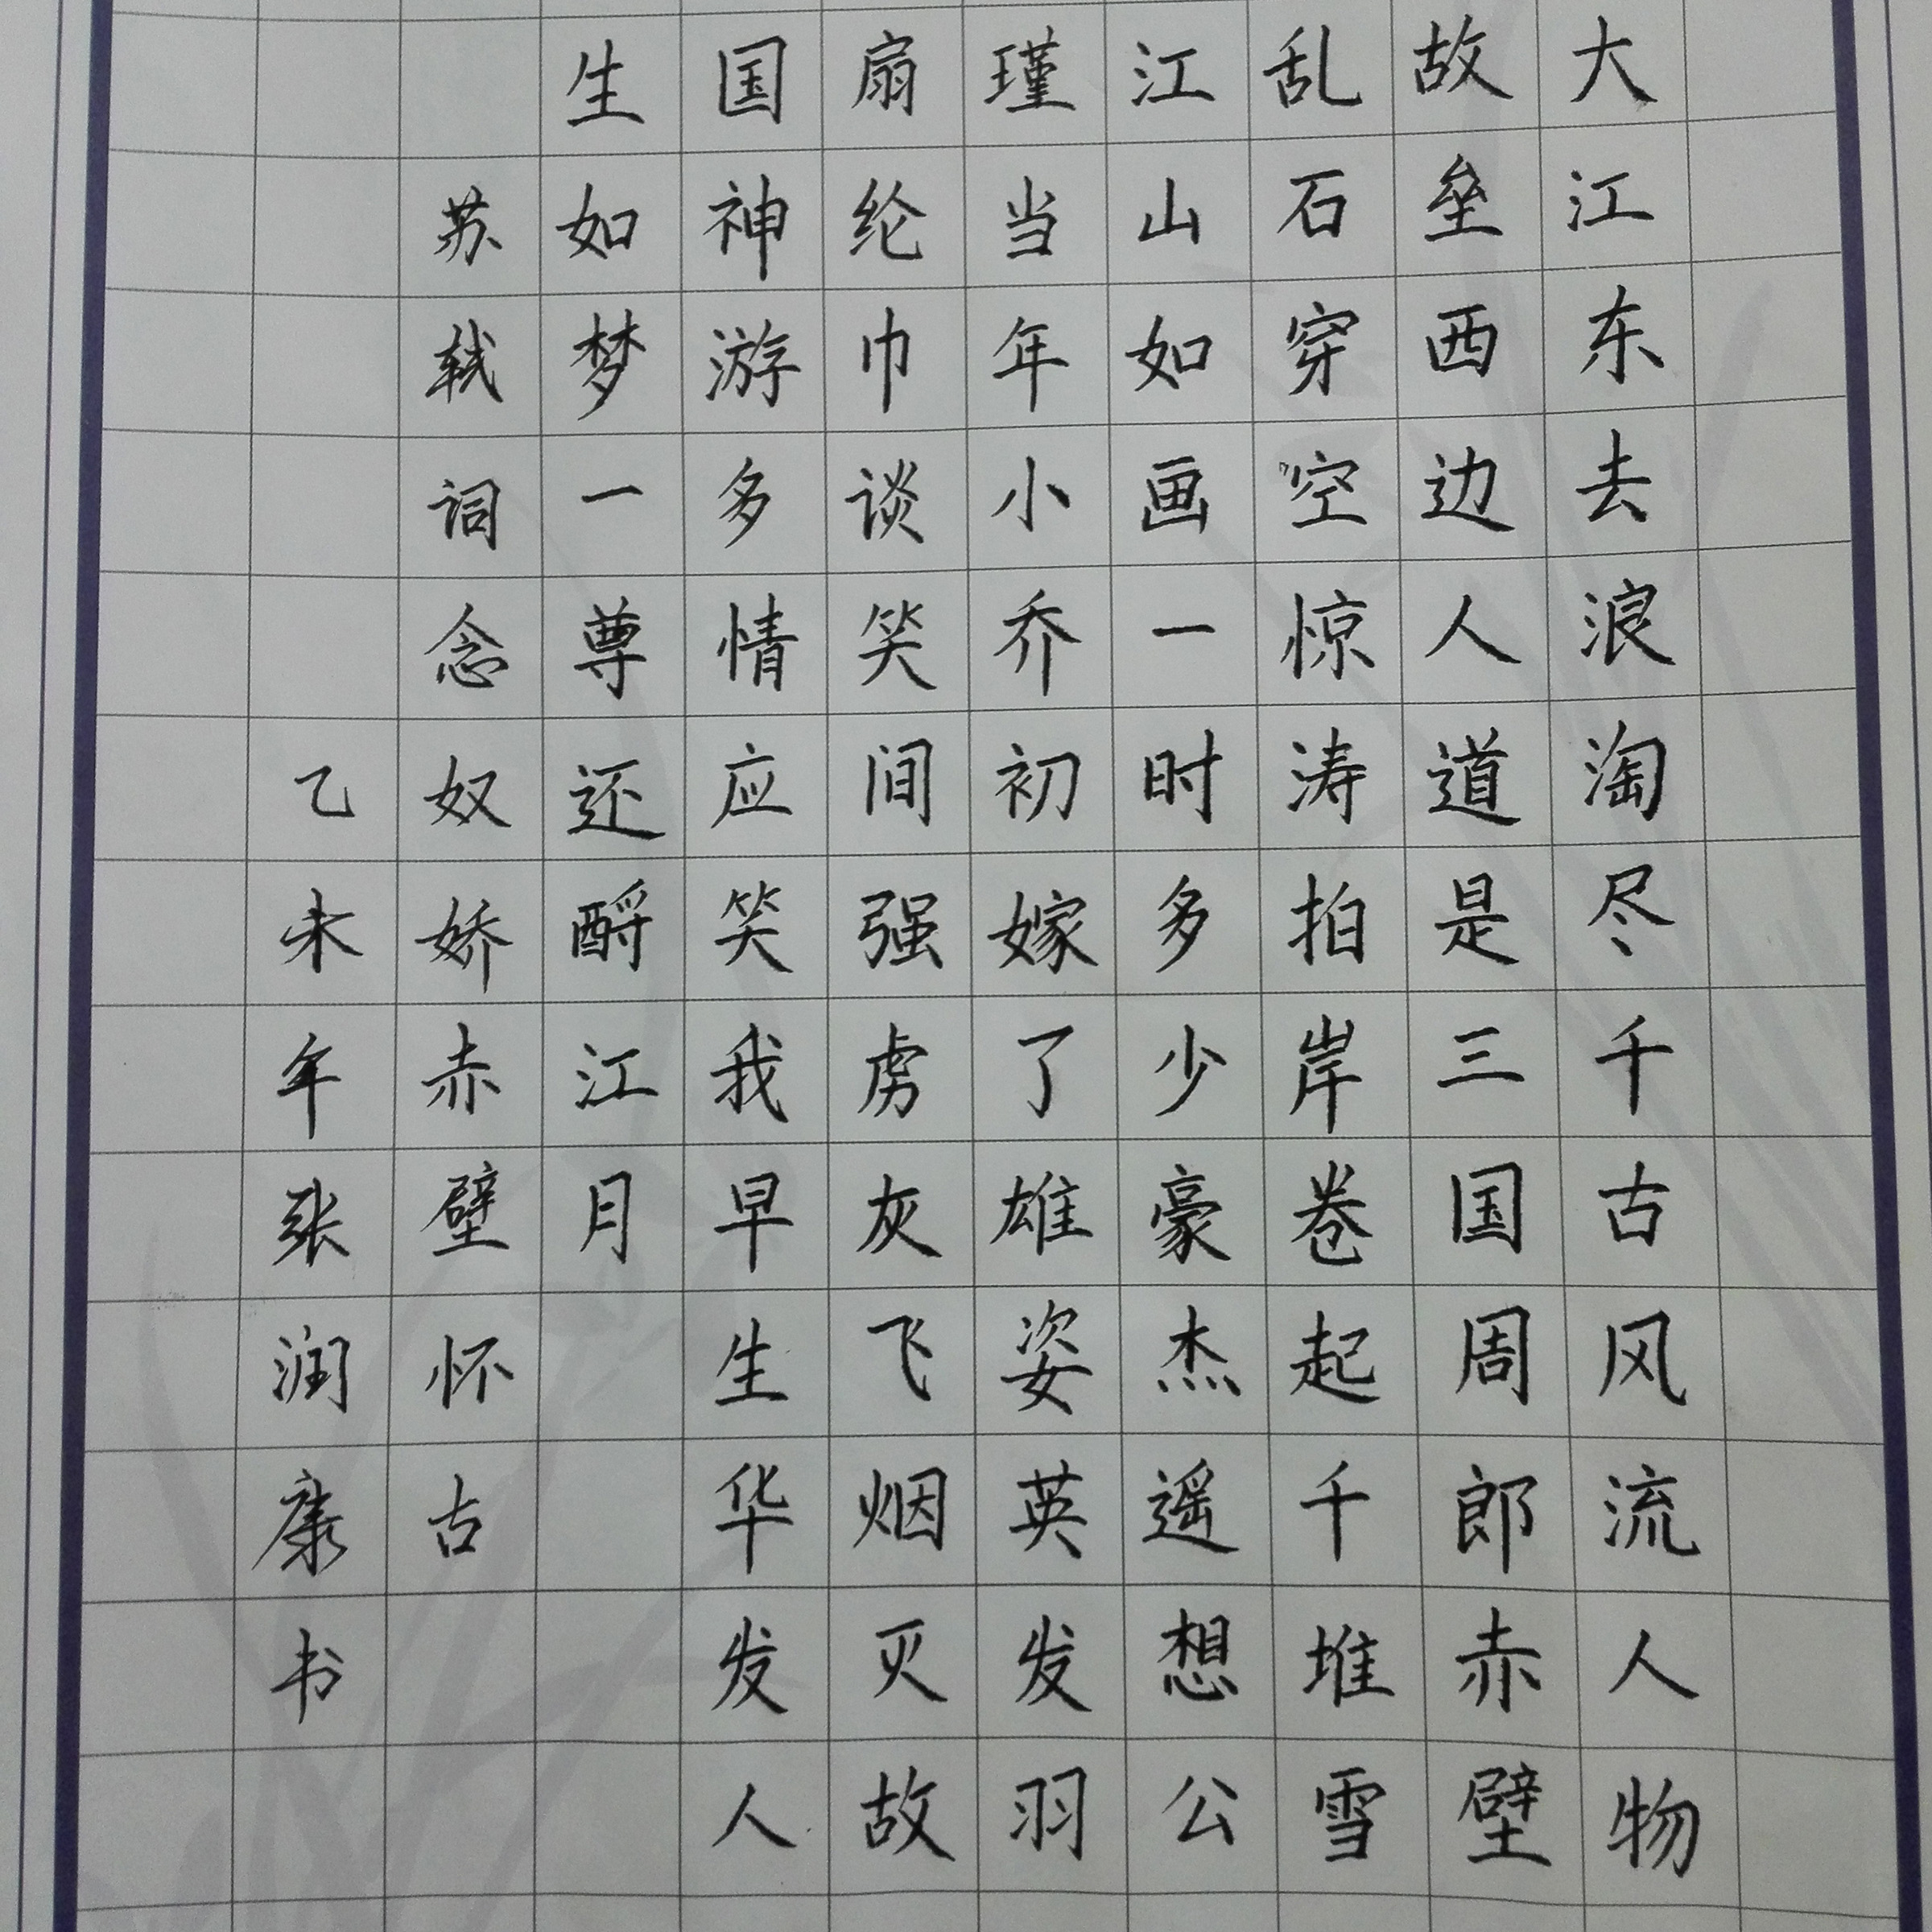 大江东去浪淘尽千古风流人物
故垒西边人道是三国周郎赤壁
乱石穿空惊涛拍岸卷起千堆雪
江山如画一时多少豪杰遥想公
瑾当年小乔初嫁了雄姿英发羽
扇纶巾谈笑间强虏灰飞烟灭故
国神游多情应笑我早生华发人
生如梦一尊还酹江月
苏轼词念奴娇赤壁怀古
乙未年张润康书